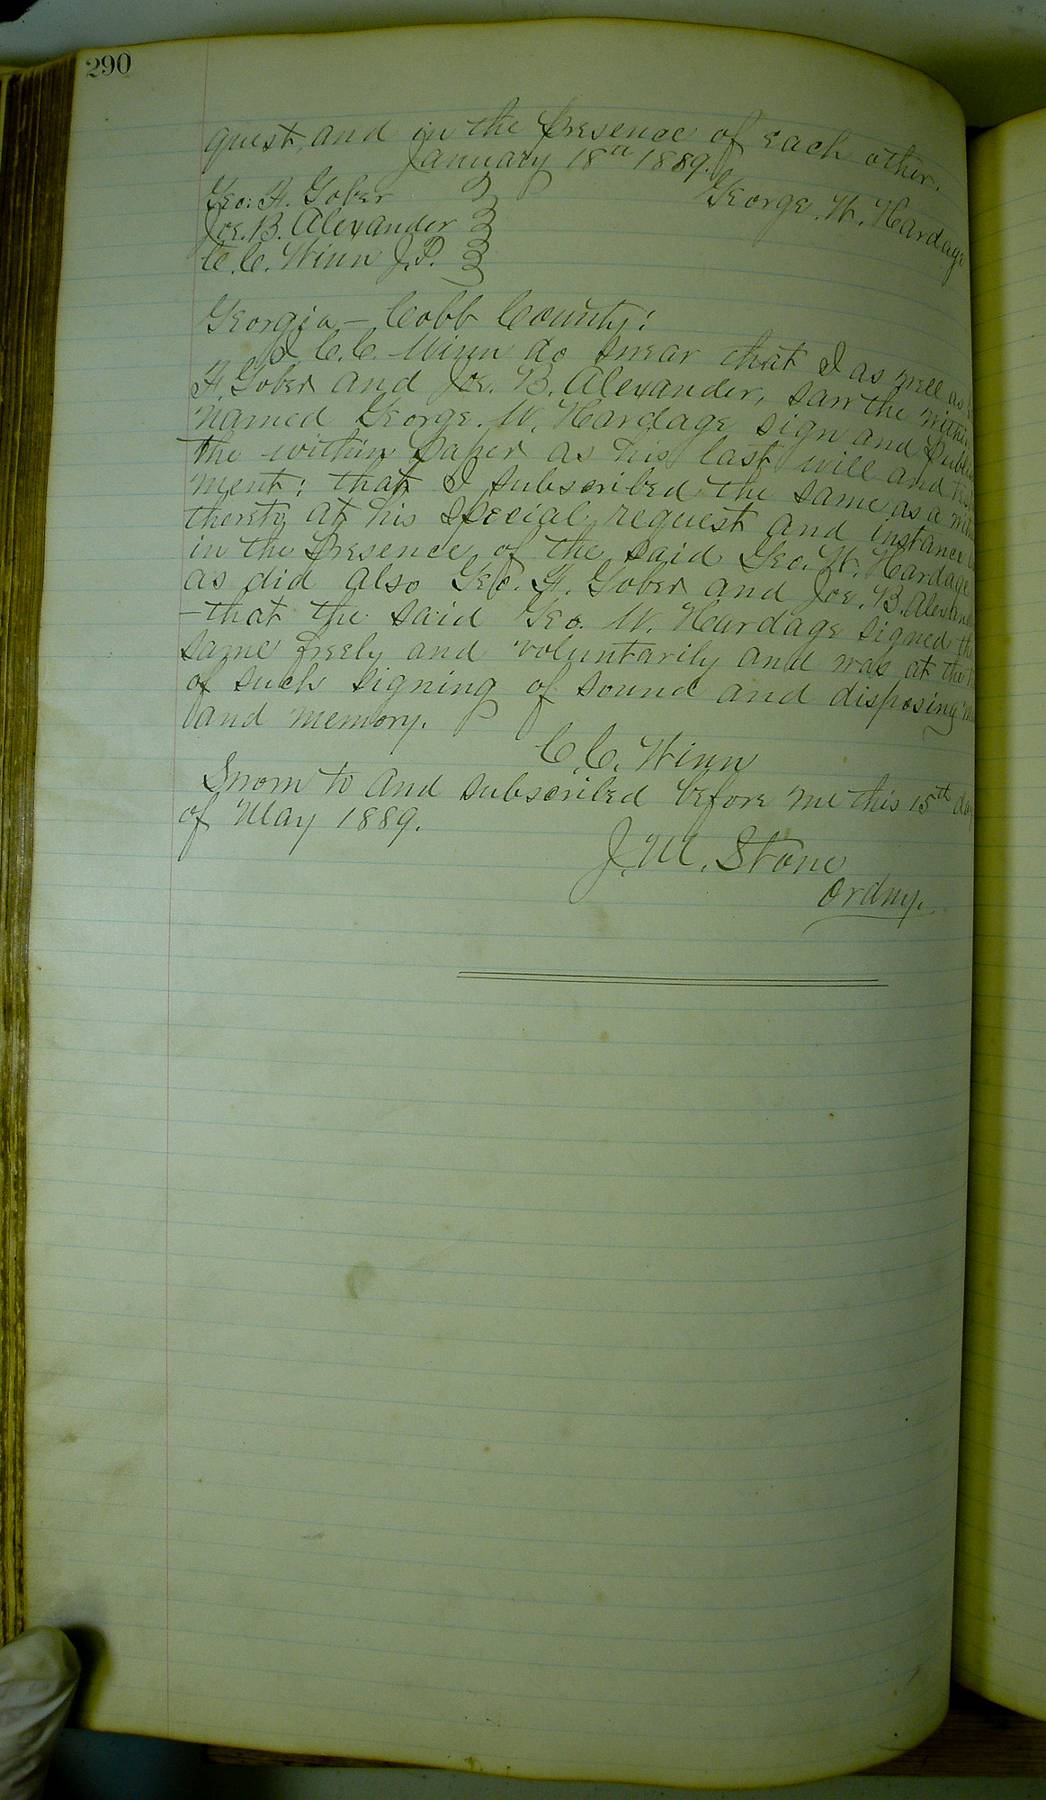 290
quest, and in the presence of each other.
January 18th 1889.
George. W. Hardage
Geo. F. Gober
Joe. B. Alexander
C. C. Winn J.P.
Georgia – Cobb County:
I C. C. Winn do swear that I as well as
F. Gober and Joe. B. Alexander, saw the within
named George. W. Hardage sign and publish
the within paper as his last will and
ment: that I subscribed the same as a
thereto at his special request and instance
in the presence of the said Geo. W. Hardage
as did also Geo. F. Gober and Joe. B. Alexand
– that the said Geo. W. Hardage signed the
same freely and voluntarily and was at the
of such signing of sound and disposing
and memory.
C. C. Winn
Sworn to and subscribed before me this 15th day
of May 1889.
J. M. Stone
Ordny.